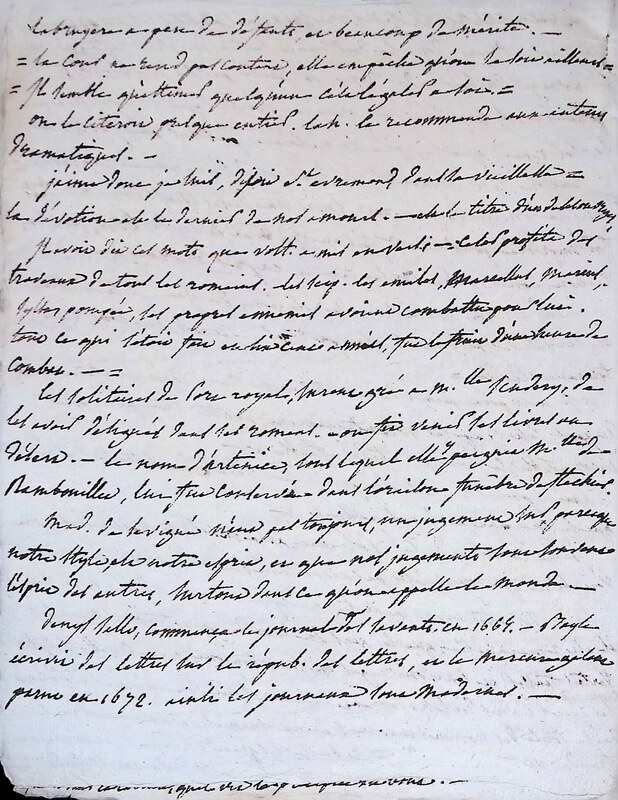 labruyere a peu de défauts, et beaucoup de mérite. —
= la cour ne rend pas content, elle empêche qu'on ne le soit ailleurs =
= Il semble qu'estimer quelqu'un c'est l'égaler a soi. =
on le citeroit presque entier. lah. le recommande aux auteurs
dramatiques. —
j'aime donc je suis, disoit St. evremond dans sa vieillesse =
la dévotion est le dernier de nos amours. — de le titre d'un de
Il avoit dit ces mots que volt. a mis en vers — César profita des
travaux de tous les romains. les scip. les emiles, Marcellus, Marius,
Sylla, pompée, ses propres ennemis avoient combattu pour lui.
tout ce qui s'étoit fait en six cens années, fut le fruit d'une heure de
combat. — =
les solitaires de port royal, surent gré a Mlle Scudery, de
les avoir désignés dans ses romans. on fit venir les livres au
désert. — le nom d'artenice, sous lequel elle peignit Mlle de
Rambouillet, lui fut conservée dans l'oraison funèbre de flechier.
Mad. de sevigné n'eut pas toujours, un jugement sur parce que
notre style, est notre esprit, et que nos jugements sont souvent
l'esprit des autres, surtout dans ce qu'on appelle le monde —
denys sallo, commença le journal des savants, en 1664. — Bayle
écrivit des lettres sur la répub. des lettres, et le mercure galant
parut en 1672. ainsi les journaux sont modernes. —